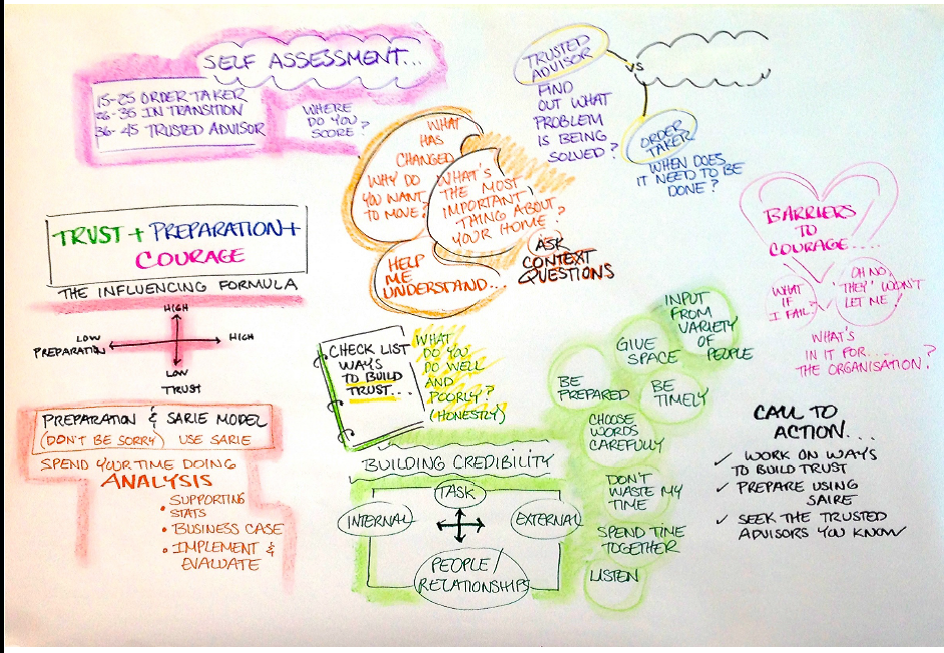 SELF ASSESSMENT...
15-25 ORDER TAKER
26-35 IN TRANSITION
36-45 TRUSTED ADVISOR
WHERE
DO YOU
SCORE?
TRUSTED
ADVISOR
VS
FIND
OUT WHAT
PROBLEM
IS BEING
SOLVED?
ORDER
TAKER
WHEN DOES
IT NEED TO BE
DONE?
WHAT
HAS
CHANGED
WHY DO
YOU WANT
TO MOVE?
WHAT'S
THE MOST
IMPORTANT
THING ABOUT
YOUR HOME?
HELP
ME
UNDERSTAND...
ASK
CONTEXT
QUESTIONS
TRUST + PREPARATION +
COURAGE
THE INFLUENCING FORMULA
HIGH
LOW
PREPARATION
HIGH
LOW
TRUST
PREPARATION & SARIE MODEL
(DON'T BE SORRY) USE SARIE
SPEND YOUR TIME DOING
ANALYSIS
• SUPPORTING
STATS
• BUSINESS CASE
• IMPLEMENT &
EVALUATE
CHECK LIST
WAYS
TO BUILD
TRUST...
WHAT
DO YOU
DO WELL
AND
POORLY?
(HONESTLY)
BUILDING CREDIBILITY
TASK
INTERNAL
EXTERNAL
PEOPLE/
RELATIONSHIPS
INPUT
FROM
VARIETY
OF
PEOPLE
GIVE
SPACE
BE
PREPARED
BE
TIMELY
CHOOSE
WORDS
CAREFULLY
DON'T
WASTE MY
TIME
SPEND TIME
TOGETHER
LISTEN
BARRIERS
TO
COURAGE....
WHAT
IF
I FAIL?
OH NO,
'THEY' WON'T
LET ME!
WHAT'S
IN IT FOR....
THE ORGANISATION?
CALL TO
ACTION...
✓ WORK ON WAYS
TO BUILD TRUST
✓ PREPARE USING
SAIRE
✓ SEEK THE TRUSTED
ADVISORS YOU KNOW